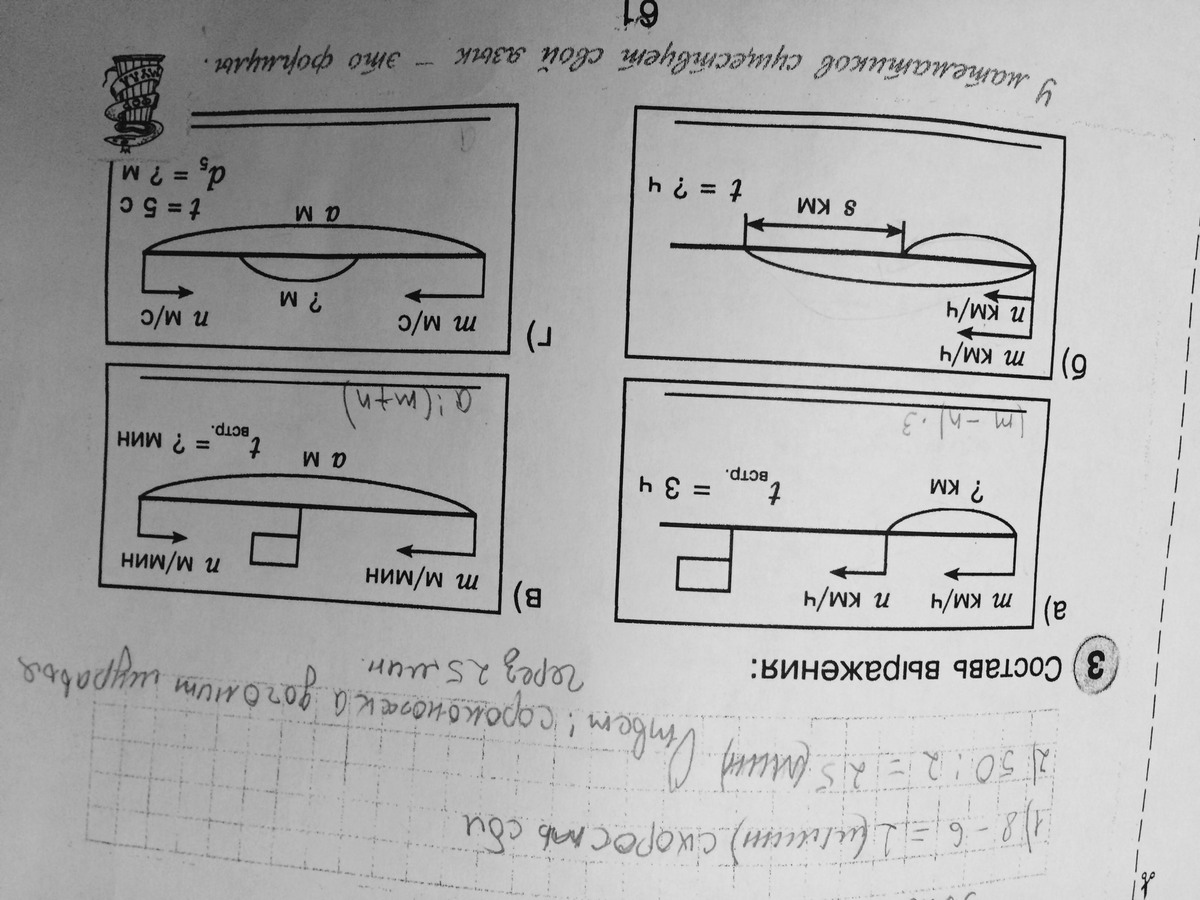 1) 8 - 6 = 2 (м/мин) скорость сбл
2) 50 : 2 = 25 (мин)
Ответ: сороконожка догонит муравья
через 25 мин.
3 Составь выражения:
а)
m км/ч n км/ч
? км
tвстр. = 3 ч
(m - n) · 3
б)
m км/ч
n км/ч
s км
t = ? ч
в)
m м/мин n м/мин
a м
tвстр. = ? мин
a : (m+n)
г)
m м/с n м/с
? м
a м
t = 5 с
d5 = ? м
У математиков существует свой язык – это формулы.
61